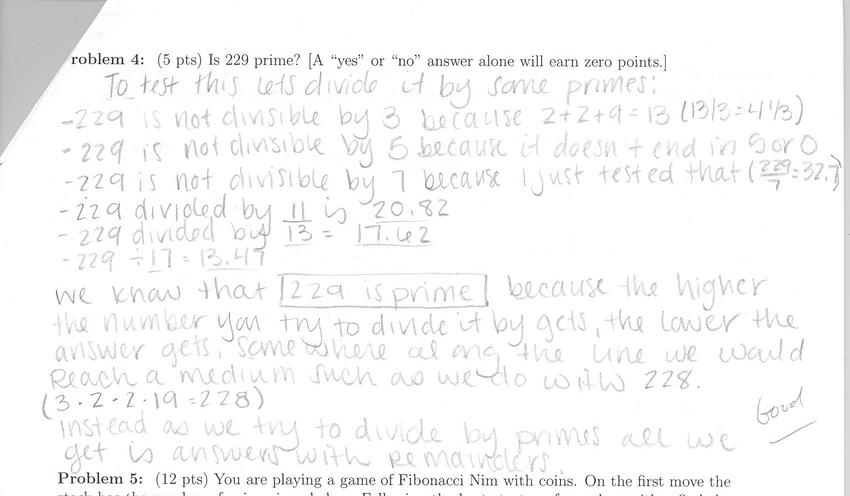 roblem 4: (5 pts) Is 229 prime? [A “yes” or “no” answer alone will earn zero points.]
To test this lets divide it by some primes:
-229 is not divisible by 3 because 2+2+9=13 (13/3=4 1/3)
- 229 is not divisible by 5 because it doesn't end in 5 or 0
-229 is not divisible by 7 because I just tested that (229/7=32.7)
-229 divided by 11 is 20.82
- 229 divided by 13 = 17.62
-229 ÷ 17 = 13.47
we know that 229 is prime because the higher
the number you try to divide it by gets, the lower the
answer gets, somewhere along the line we would
reach a medium such as we do with 228.
(3·2·2·19=228)
Good
Instead as we try to divide by primes all we
get is answers with remainders.
Problem 5: (12 pts) You are playing a game of Fibonacci Nim with coins. On the first move the